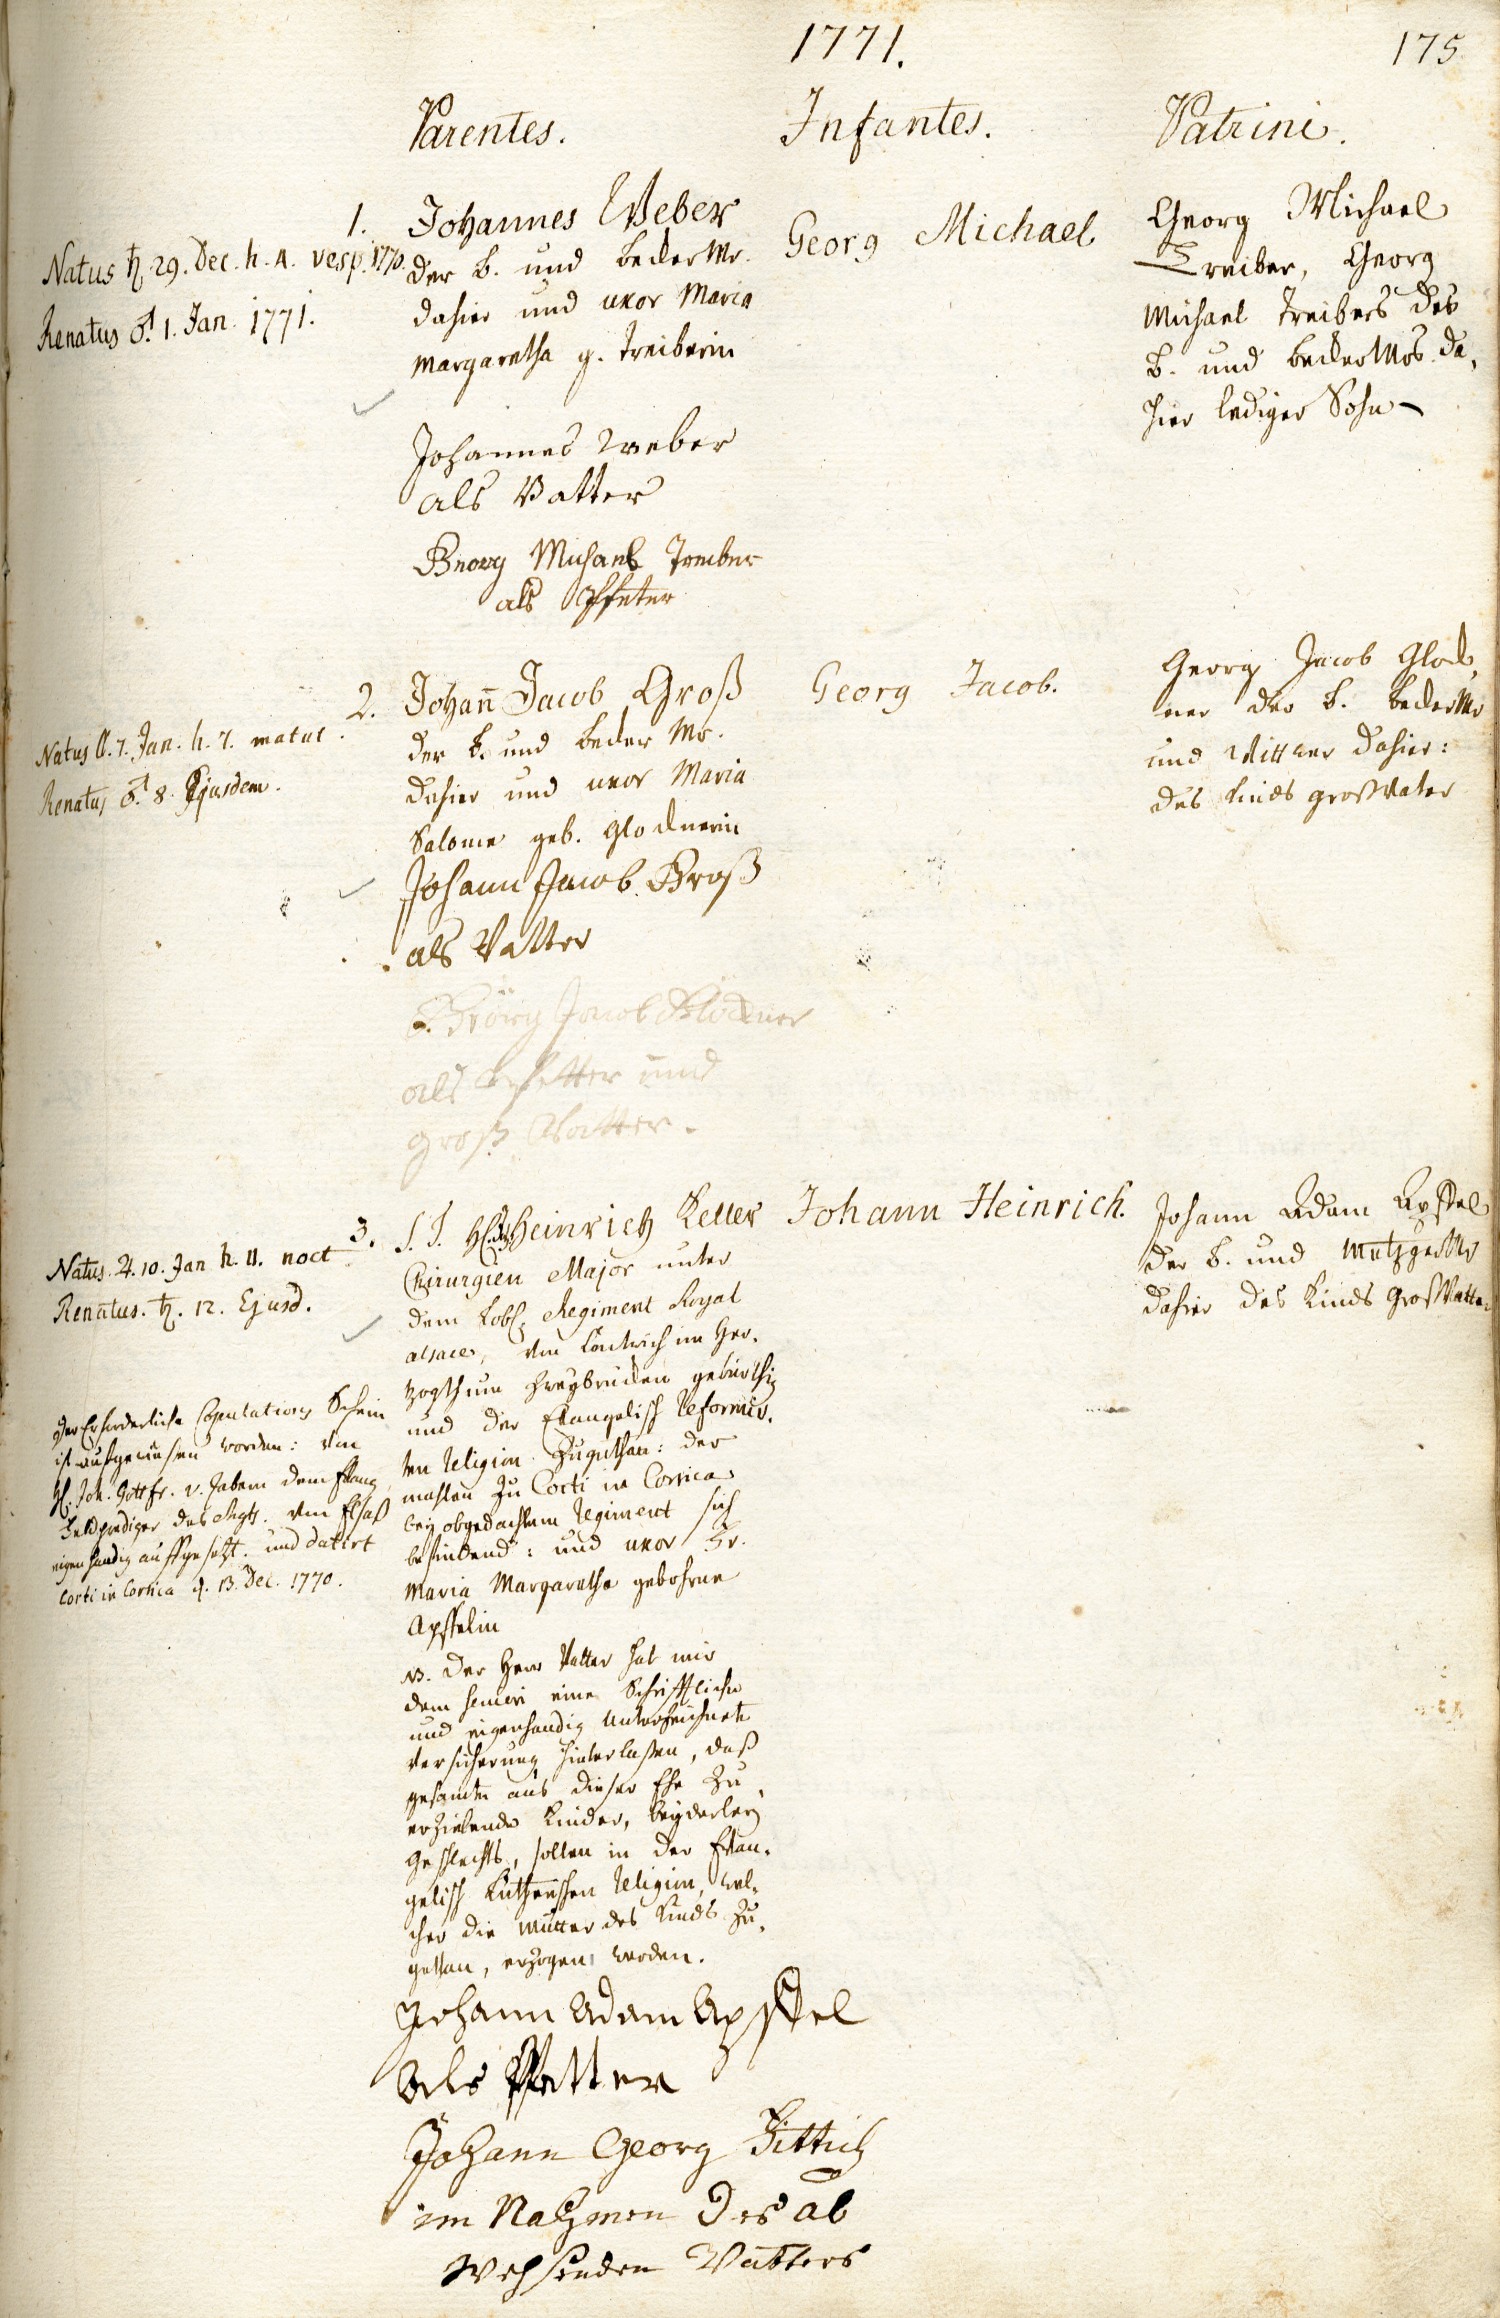 1771.
175
Parentes.
Infantes.
Patrini.
1.
Natus ♄ 29. Dec. h. 4. vesp. 1770.
Renatus ♂ 1. Jan. 1771.
Johannes Weber
der b. und becker Mr.
dahier und uxor Maria
Margaretha g. Treiberin
Johannes Weber
als Vatter
Georg Michael Treiber
als Pfetter
Georg Michael
Georg Michael
Treiber, Georg
Michael Treibers des
b. und becker Mrs. da,
hier lediger Sohn
2.
Natus 7. Jan. h. 7. matut.
Renatus ♂ 8. Ejusdem.
Johann Jacob Groß
der b. und becker Mr.
dahier und uxor Maria
Salome geb. Glocknerin
Johann Jacob Groß
als Vatter
Georg Jacob Glöckner
als Pfetter und
groß Vatter.
Georg Jacob.
Georg Jacob Glock,
ner der b. becker Mr
und Wittwer dahier:
des Kinds großVater
3.
Natus ♃ 10. Jan h. 11. noct
Renatus. ♄. 12. Ejusd.
Der Erforderliche Copulations Schein
ist aufgewiesen worden: von
H. Joh. Gottfr. v. Jabem dem Evang.
Feldprediger des Regts. von Elsaß
eigenhandig auffgesetzt. und datirt
Corti in Corsica d. 13. Dec. 1770.
S. T. H. Heinrich Keller
Chirurgien Major unter
dem Lobl. Regiment Royal
alsace, von im Her,
zogthum Zweybrucken gebürthig
und der Evangelisch Reformir,
ten Religion Zugethan: der
mahlen Zu Corti in Corsica
bey obgedachtem Regiment sich
befindend: und uxor Fr.
Maria Margaretha gebohrne
Apffelin
NB. Der Herr Vatter hat mir
dem eine Schrifftliche
und eigenhandig Unterzeichnete
Versicherung hinterlaßen, daß
gesamte aus dieser Ehe Zu
erzielende Kinder, beyderley
Geschlechts, sollen in der Evan,
gelisch Lutherischen Religion, wel,
cher die Mutter des Kinds Zu,
gethan, erzogen werden.
Johann Adam Apffel
als Pfetter
Johann Georg Dittrich
im Nahmen des ab
wehsenden Vatters
Johann Heinrich.
Johann Adam Apffel
der b. und Metzger Mr
dahier des Kinds GrosVatter